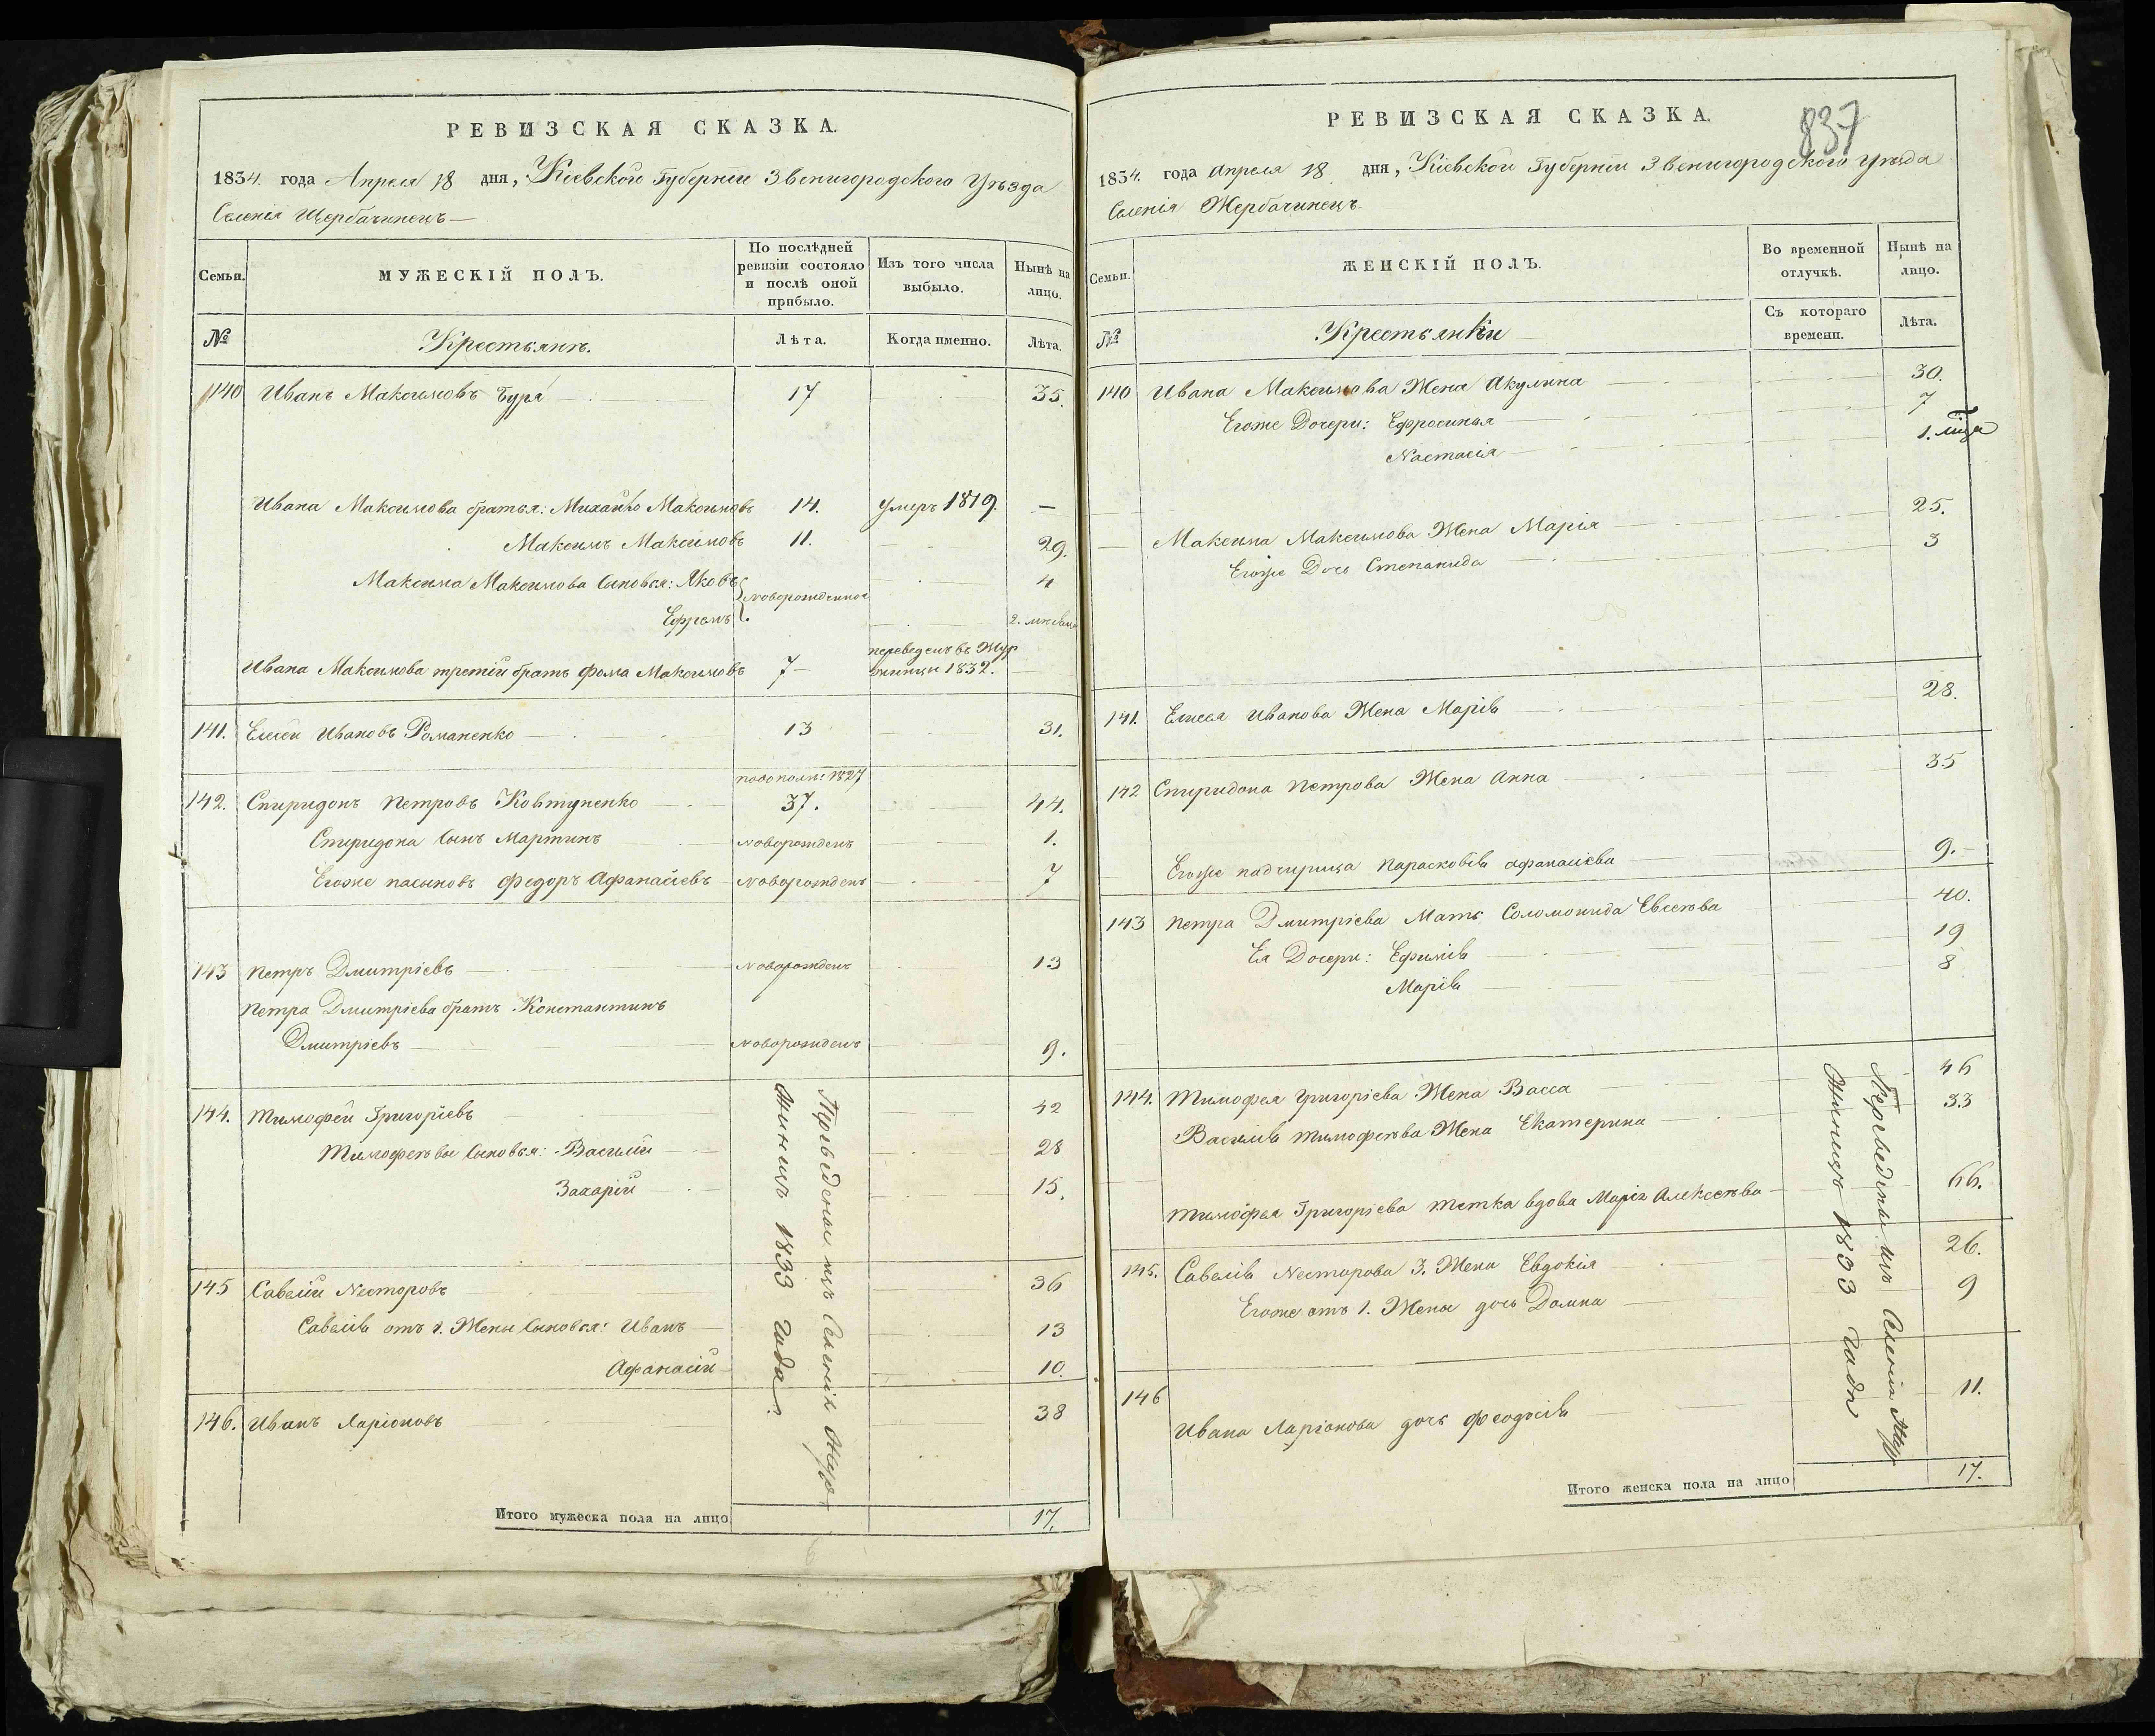 РЕВИЗСКАЯ СКАЗКА.
1834. года Апреля 18 дня, Кіевской Губерніи Звенигородского Уѣзда
Селенія Щербачинецъ—
Семьи.
МУЖЕСКІЙ ПОЛЪ.
По послѣдней ревизіи состояло и послѣ оной прибыло.
Изъ того числа выбыло.
Нынѣ на лицо.
№
Крестьянъ.
Лѣта.
Когда именно.
Лѣта.
140 Иванъ Максимовъ Бура 17 35.
Ивана Максимова братья: Михайло Максимовъ 14. Умеръ 1819. —
Максимъ Максимовъ 11. 29.
Максима Максимова сыновья: Яковъ новорожденные 4
Ефремъ 2. мѣсяца
Ивана Максимова третій братъ Фома Максимовъ 7— переведенъ въ Жур
жинцы 1832.
141. Елисей Ивановъ Романенко 13 31.
новополн: 1827
142. Спиридонъ Петровъ Ковтуненко 37. 44.
Спиридона сынъ Мартинъ новорожденъ 1.
Егоже пасынокъ Федоръ Афанасіевъ новорожденъ 7
143 Петръ Дмитріевъ Новорожденъ 13
Петра Дмитріева братъ Константинъ
Дмитріевъ новорожденъ 9.
144. Тимофей Григоріевъ 42
Тимофеевы сыновья: Василій 28
Захарій 15.
145 Савелій Несторовъ 36
Савелія отъ 1. Жены сыновья: Иванъ 13
Афанасій 10.
146. Иванъ Ларіоновъ 38
Переведены изъ Селенія Жур
жинецъ 1833 года.
Итого мужеска пола на лицо 17.
РЕВИЗСКАЯ СКАЗКА.
837
1834. года Апреля 18 дня, Кіевской Губерніи Звенигородского Уѣзда
Селенія Щербачинецъ
Семьи.
ЖЕНСКІЙ ПОЛЪ.
Во временной отлучкѣ.
Нынѣ на лицо.
№
Крестьянки
Съ котораго времени.
Лѣта.
140 Ивана Максимова Жена Акулина 30.
Егоже Дочери: Ефросинья 7
Настасія 1.
Максима Максимова Жена Марія 25.
Егоже Дочь Степанида 3
141. Елисея Иванова Жена Марія 28.
142 Спиридона Петрова Жена Анна 35
Егоже падчерица Парасковія Афанасіева 9.
143 Петра Дмитріева Мать Соломонида Евсеѣва 40.
Ея Дочери: Ефимія 19
Марія 8
144. Тимофея Григоріева Жена Васса 46
Василія Тимофеѣва Жена Екатерина 33
Тимофея Григоріева тетка вдова Марія Алексеѣва 66.
145. Савелія Несторова 3. Жена Евдокія 26.
Егоже отъ 1. Жены дочь Домна 9
146
Ивана Ларіонова дочь Феодосія 11.
Переведены изъ Селенія Жур
жинецъ 1833 года
Итого женска пола на лицо 17.